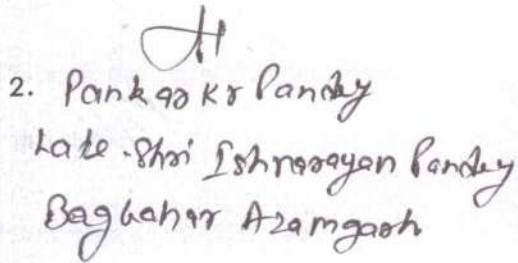 2. Pankaj Kr Pandey
Late. Shri Ishnarayan Pandey
Bagbahar Azamgarh